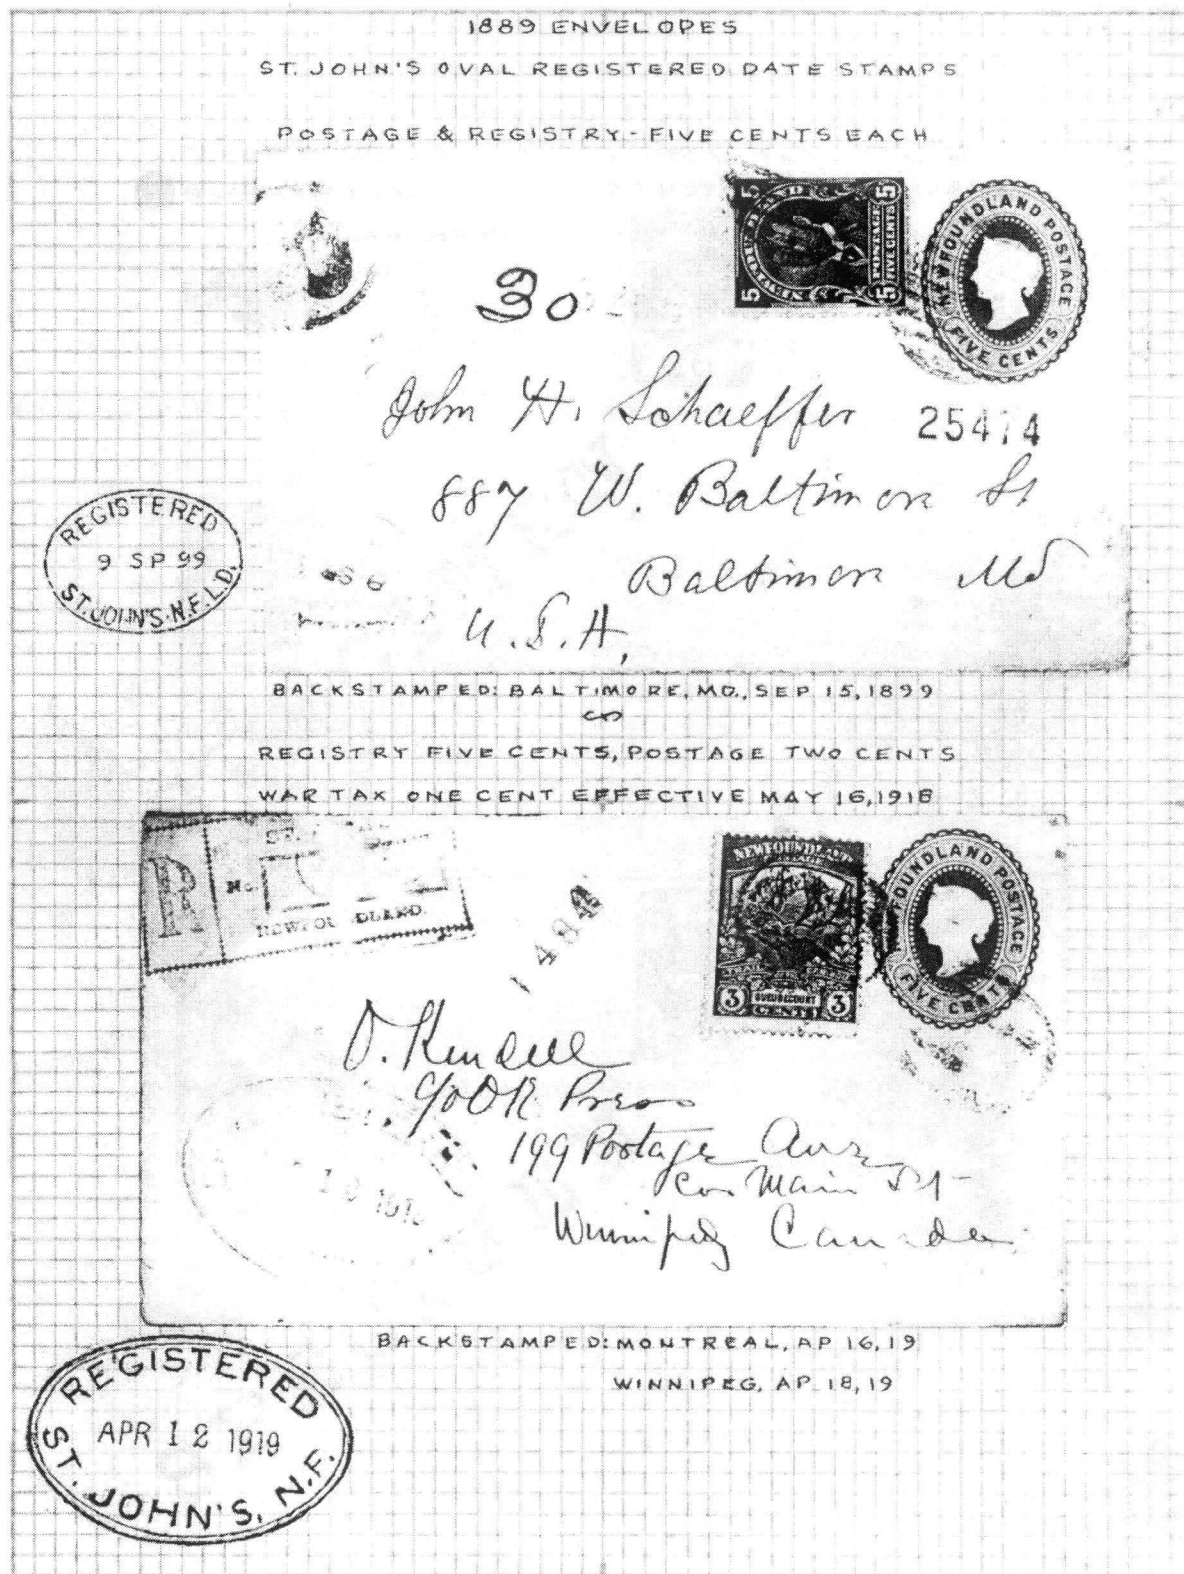 1889 ENVELOPES
ST. JOHN'S OVAL REGISTERED DATE STAMPS
POSTAGE & REGISTRY - FIVE CENTS EACH
5 5
POSTAGE
5 FIVE CENTS 5
NEWFOUNDLAND POSTAGE
FIVE CENTS
30
John H. Schaeffer
25474
887 W. Baltimore St
Baltimore Md
U.S.A,
REGISTERED
9 SP 99
ST. JOHN'S. N.F.L.D.
BACKSTAMPED: BALTIMORE, MD., SEP 15, 1899
REGISTRY FIVE CENTS, POSTAGE TWO CENTS
WAR TAX ONE CENT EFFECTIVE MAY 16, 1918
R No.
NEWFOUNDLAND.
1484
NEWFOUNDLAND
3 GUEUDECOURT 3
CENTS
FOUNDLAND POSTAGE
FIVE CENTS
O. Kendell
c/o OR Press
199 Postage Ave
Cor Main St
Winnipeg Canada
BACKSTAMPED: MONTREAL, AP 16, 19
WINNIPEG, AP 18, 19
REGISTERED
APR 12 1919
ST. JOHN'S, N.F.